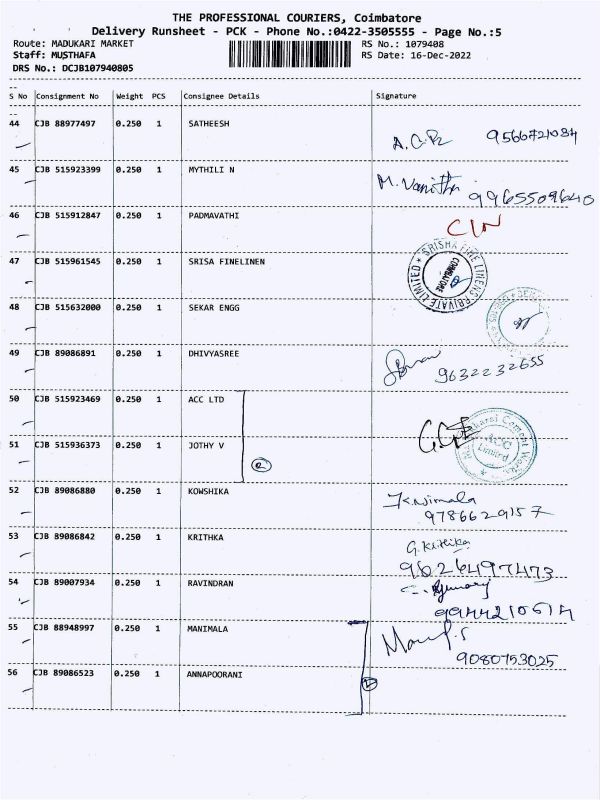 THE PROFESSIONAL COURIERS, Coimbatore
Delivery Runsheet - PCK - Phone No.:0422-3505555 - Page No.:5
Route: MADUKARI MARKET RS No.: 1079408
Staff: MUSTHAFA RS Date: 16-Dec-2022
DRS No.: DCJB107940805
S No Consignment No Weight PCS Consignee Details Signature
44 CJB 88977497 0.250 1 SATHEESH 9566721084
45 CJB 515923399 0.250 1 MYTHILI N M. Vanitha
9965509640
46 CJB 515912847 0.250 1 PADMAVATHI
47 CJB 515961545 0.250 1 SRISA FINELINEN SRISHA FINE LINENS PRIVATE LIMITED COIMBATORE
48 CJB 515632000 0.250 1 SEKAR ENGG
49 CJB 89086891 0.250 1 DHIVYASREE 9632232655
50 CJB 515923469 0.250 1 ACC LTD
51 CJB 515936373 0.250 1 JOTHY V ACC Limited
2
52 CJB 89086880 0.250 1 KOWSHIKA K. Nimala
9786629157
53 CJB 89086842 0.250 1 KRITHKA G. Krithika
9626497473
54 CJB 89007934 0.250 1 RAVINDRAN
9944210514
55 CJB 88948997 0.250 1 MANIMALA
9080753025
56 CJB 89086523 0.250 1 ANNAPOORANI 2